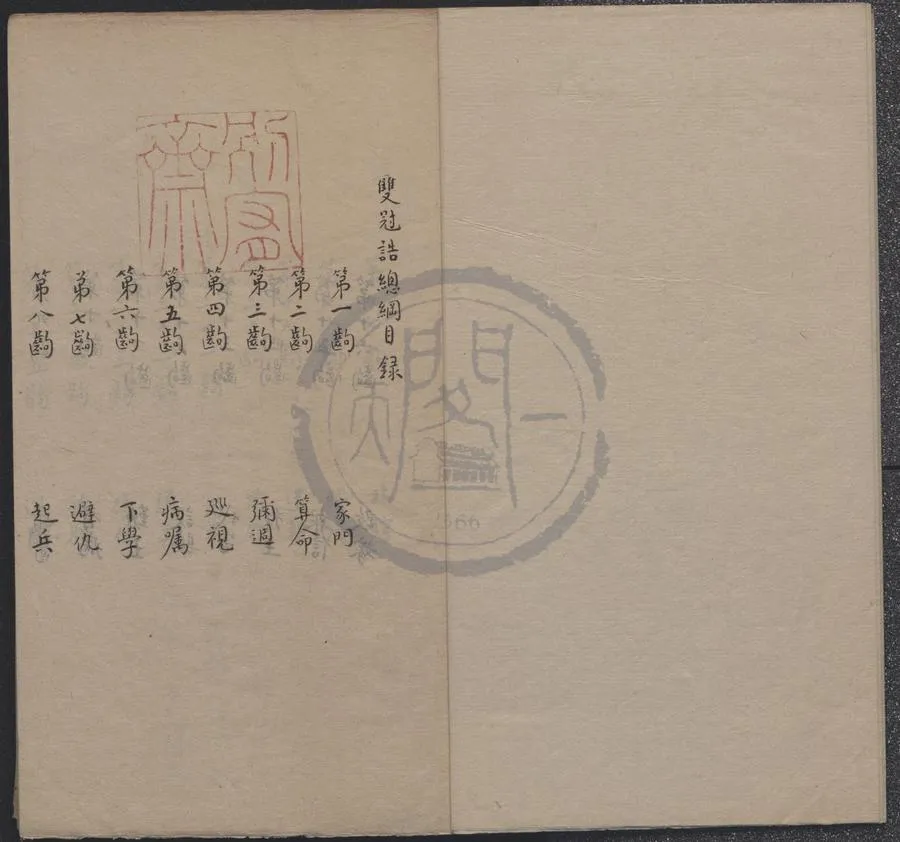 雙冠誥總綱目録
第一齣 家門
第二齣 算命
第三齣 彌週
第四齣 巡視
第五齣 病嘱
第六齣 下學
第七齣 避仇
第八齣 起兵
別宥齋
天一閣
1566